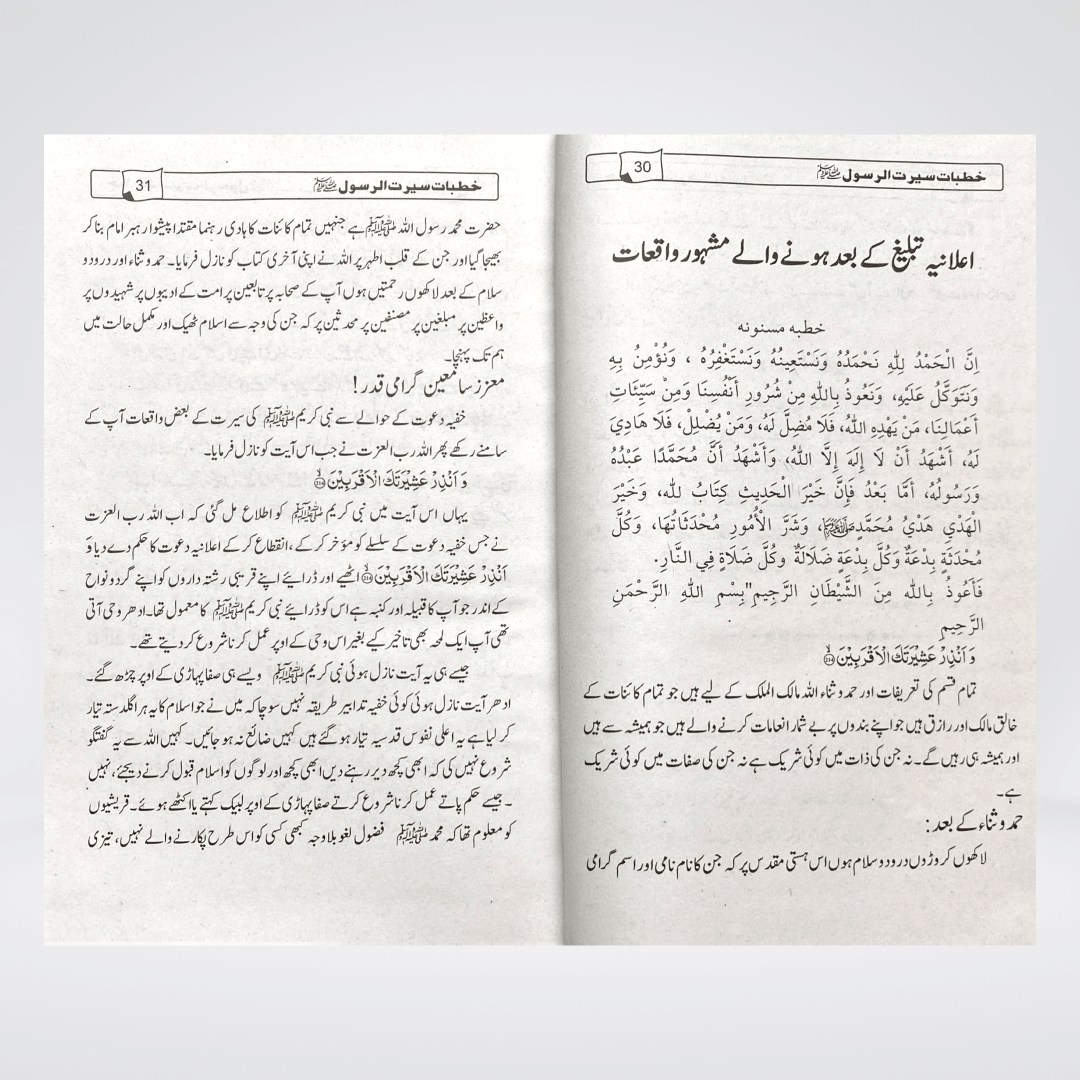 خطبات سیرت الرسول ﷺ
30
اعلانیہ تبلیغ کے بعد ہونے والے مشہور واقعات
خطبہ مسنونہ
اِنَّ الْحَمْدَ لِلّٰهِ نَحْمَدُهُ وَنَسْتَعِينُهُ وَنَسْتَغْفِرُهُ ، وَنُؤْمِنُ بِهِ
وَنَتَوَكَّلُ عَلَيْهِ، وَنَعُوذُ بِاللّٰهِ مِنْ شُرُورِ أَنْفُسِنَا وَمِنْ سَيِّئَاتِ
أَعْمَالِنَا، مَنْ يَهْدِهِ اللّٰهُ، فَلَا مُضِلَّ لَهُ، وَمَنْ يُضْلِلْ، فَلَا هَادِيَ
لَهُ، أَشْهَدُ أَنْ لَا إِلَهَ إِلَّا اللّٰهُ، وَأَشْهَدُ أَنَّ مُحَمَّدًا عَبْدُهُ
وَرَسُولُهُ، أَمَّا بَعْدُ فَإِنَّ خَيْرَ الْحَدِيثِ كِتَابُ للّٰه، وَخَيْرَ
الْهَدْيِ هَدْيُ مُحَمَّدٍ ﷺ، وَشَرَّ الْأُمُورِ مُحْدَثَاتُهَا، وَكُلَّ
مُحْدَثَةٍ بِدْعَةٌ وَكُلَّ بِدْعَةٍ ضَلَالَةٌ وَكُلَّ ضَلَاةٍ فِي النَّارِ.
فَأَعُوذُ بِاللّٰه مِنَ الشَّيْطَانِ الرَّجِيمِ"بِسْمِ اللّٰهِ الرَّحْمَنِ
الرَّحِيمِ
وَ اَنْذِرْ عَشِيْرَتَكَ الْاَقْرَبِيْنَ ﴿۲۱۴﴾
تمام قسم کی تعریفات اور حمد و ثناء اللہ مالک الملک کے لیے ہیں جو تمام کائنات کے
خالق مالک اور رازق ہیں جو اپنے بندوں پر بے شمار انعامات کرنے والے ہیں جو ہمیشہ سے ہیں
اور ہمیشہ ہی رہیں گے۔ نہ جن کی ذات میں کوئی شریک ہے نہ جن کی صفات میں کوئی شریک
ہے۔
حمد و ثناء کے بعد:
لاکھوں کروڑوں درود و سلام ہوں اس ہستی مقدس پر کہ جن کا نام نامی اور اسم گرامی
خطبات سیرت الرسول ﷺ
31
حضرت محمد رسول اللہ ﷺ ہے جنہیں تمام کائنات کا ہادی رہنما مقتدا پیشوا رہبر امام بنا کر
بھیجا گیا اور جن کے قلب اطہر پر اللہ نے اپنی آخری کتاب کو نازل فرمایا۔ حمد و ثناء اور درود و
سلام کے بعد لاکھوں رحمتیں ہوں آپ کے صحابہ پر تابعین پر امت کے ادیبوں پر شہیدوں پر
واعظین پر مبلغین پر مصنفین پر محدثین پر کہ جن کی وجہ سے اسلام ٹھیک اور مکمل حالت میں
ہم تک پہنچا۔
معزز سامعین گرامی قدر!
خفیہ دعوت کے حوالے سے نبی کریم ﷺ کی سیرت کے بعض واقعات آپ کے
سامنے رکھے پھر اللہ رب العزت نے جب اس آیت کو نازل فرمایا۔
وَ اَنْذِرْ عَشِيْرَتَكَ الْاَقْرَبِيْنَ ﴿۲۱۴﴾
یہاں اس آیت میں نبی کریم ﷺ کو اطلاع مل گئی کہ اب اللہ رب العزت
نے جس خفیہ دعوت کے سلسلے کو مؤخر کر کے، انقطاع کر کے اعلانیہ دعوت کا حکم دے دیا وَ
اَنْذِرْ عَشِيْرَتَكَ الْاَقْرَبِيْنَ ﴿۲۱۴﴾ اٹھیے اور ڈرائیے اپنے قریبی رشتہ داروں کو اپنے گرد و نواح
کے اندر جو آپ کا قبیلہ اور کنبہ ہے اس کو ڈرائیے نبی کریم ﷺ کا معمول تھا۔ ادھر وحی آتی
تھی آپ ایک لمحہ بھی تاخیر کیے بغیر اس وحی کے اوپر عمل کرنا شروع کر دیتے تھے۔
جیسے ہی یہ آیت نازل ہوئی نبی کریم ﷺ ویسے ہی صفا پہاڑی کے اوپر چڑھ گئے۔
ادھر آیت نازل ہوئی کوئی خفیہ تدابیر طریقہ نہیں سوچا کہ میں نے جو اسلام کا یہ ہرا گلدستہ تیار
کر لیا ہے یہ اعلی نفوس قدسیہ تیار ہو گئے ہیں کہیں ضائع نہ ہو جائیں۔ کہیں اللہ سے یہ گفتگو
شروع نہیں کی کہ ابھی کچھ دیر رہنے دیں ابھی کچھ اور لوگوں کو اسلام قبول کرنے دیجئے، نہیں
۔ جیسے حکم پاتے عمل کرنا شروع کرتے صفا پہاڑی کے اوپر لبیک کہتے یا اکٹھے ہوئے۔ قریشیوں
کو معلوم تھا کہ محمد ﷺ فضول لغو بلا وجہ کبھی کسی کو اس طرح پکارنے والے نہیں، تیزی